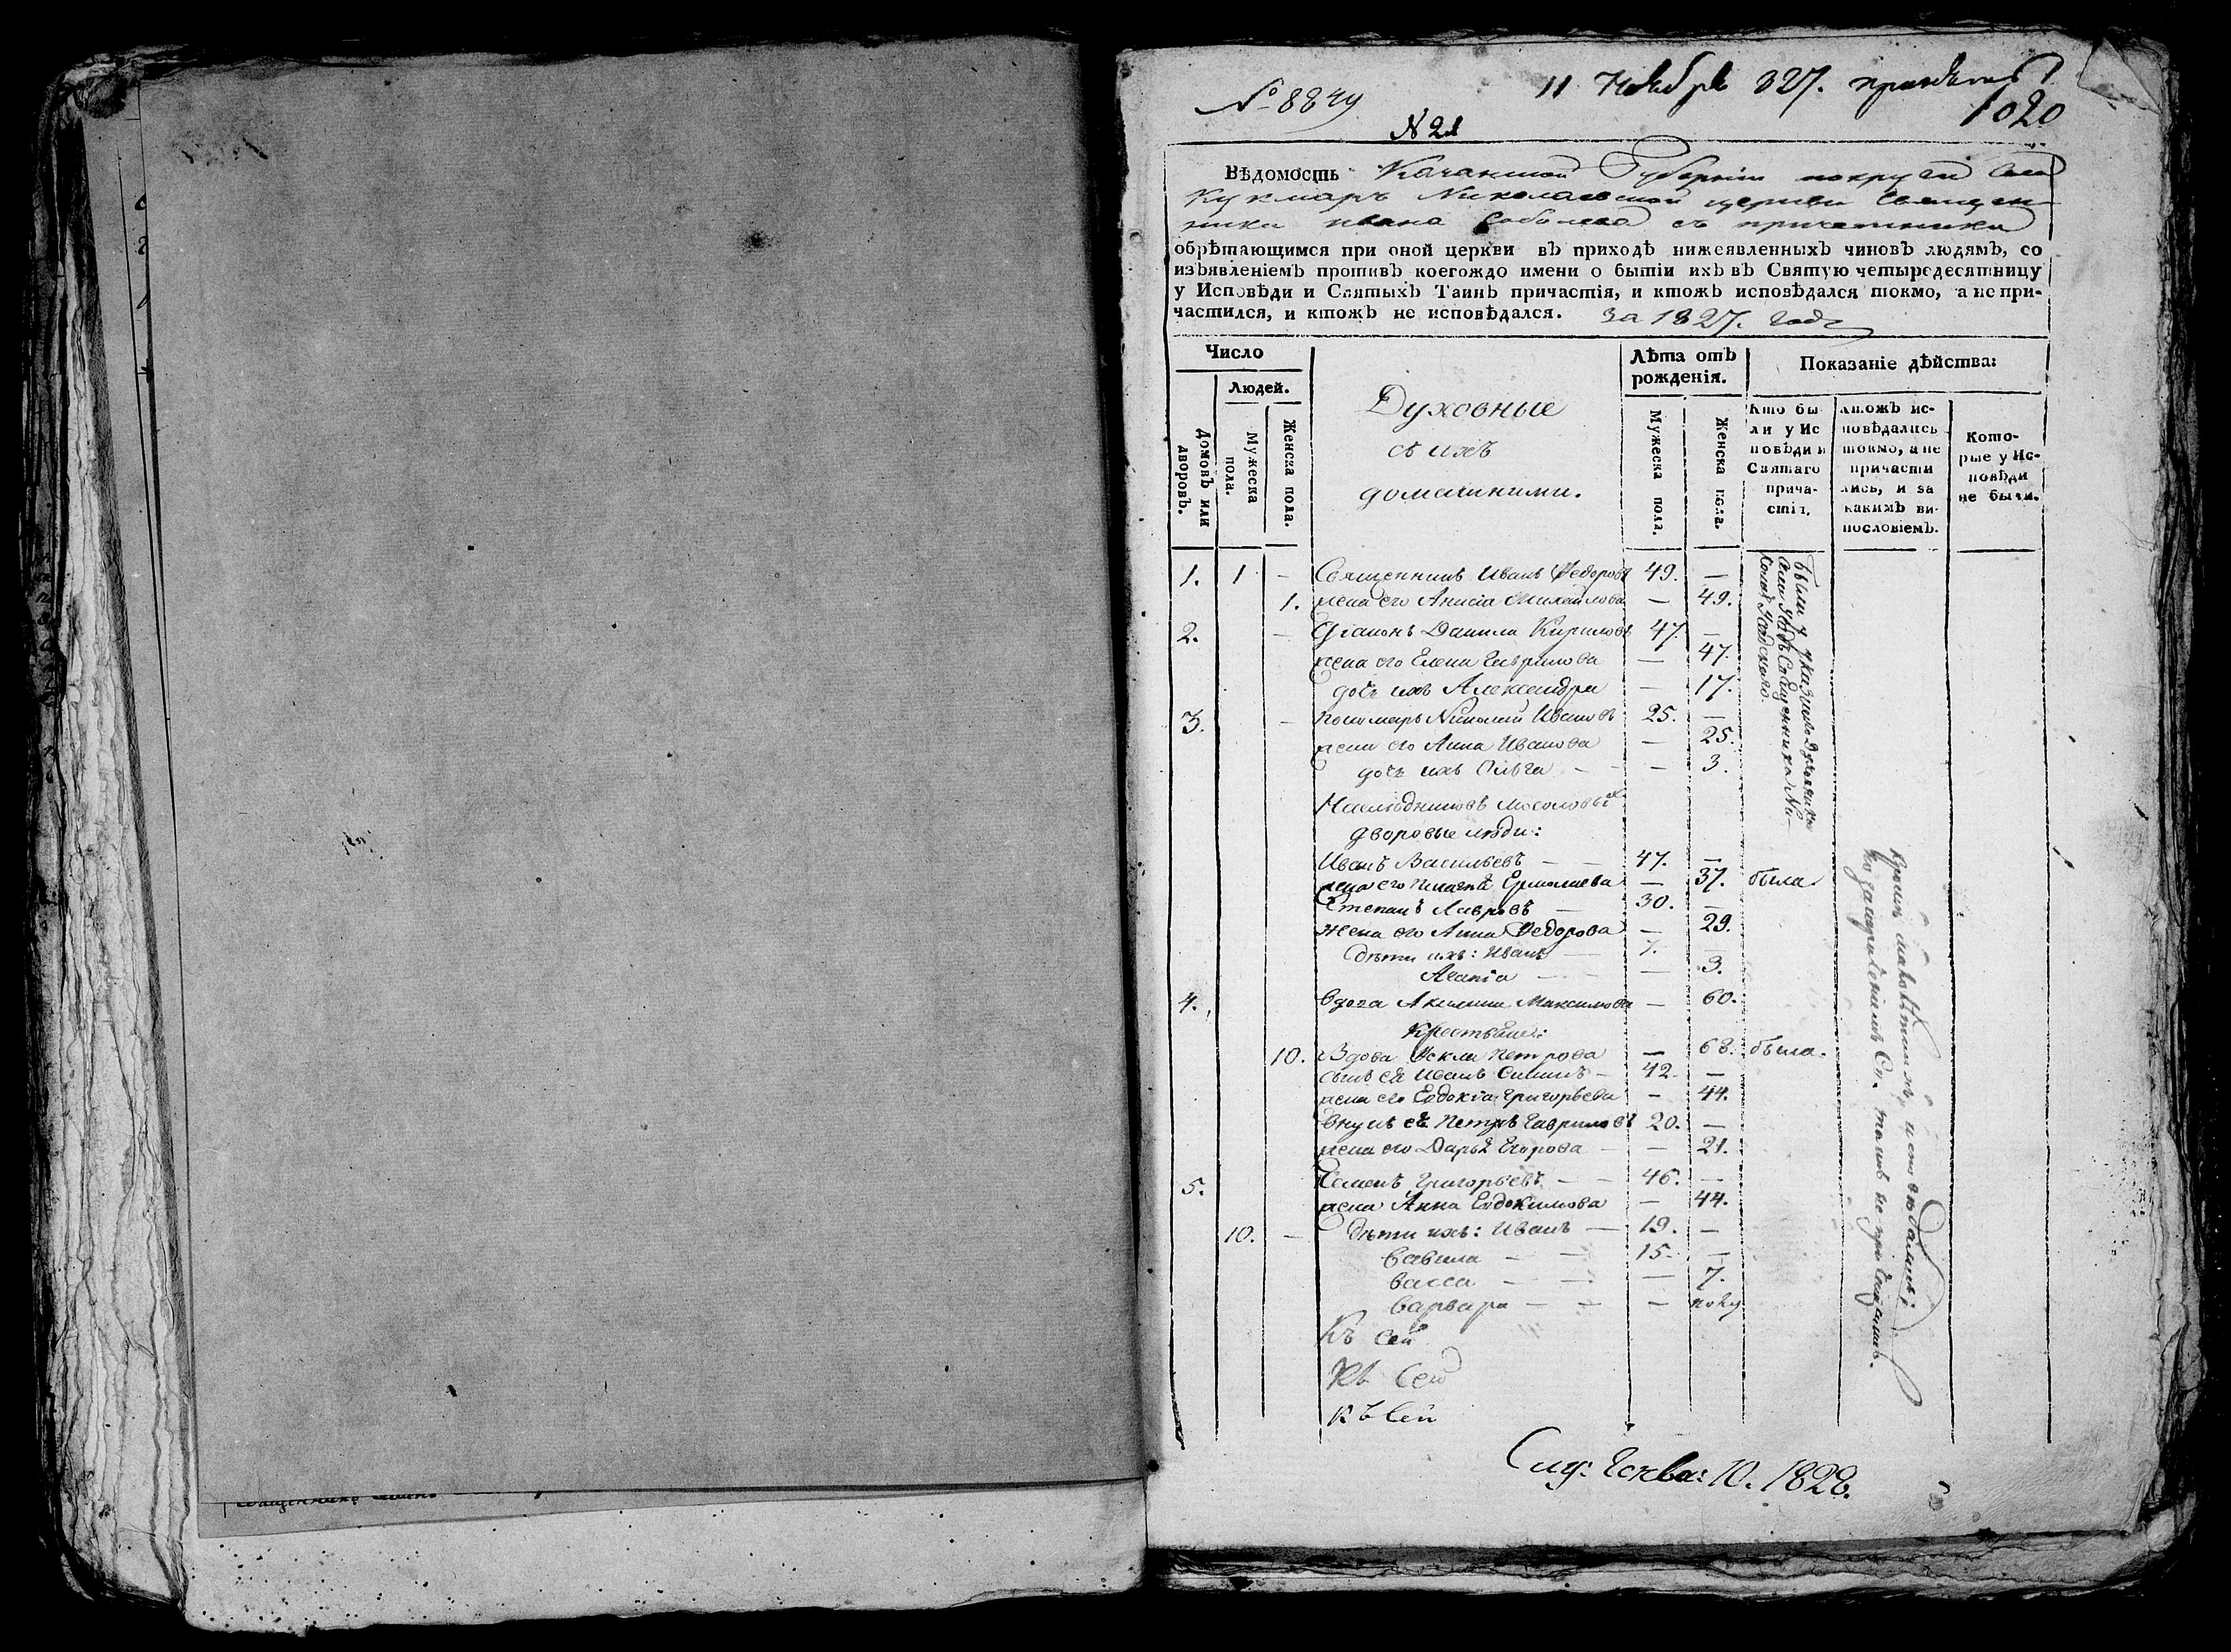 № 8849
11 Ноября 827.
1020
N 21
Вѣдомость Казанской Губерніи округи села
Кукмаръ Николаевской церкви Священ-
ника Ивана Соболева съ причетники
обрѣтающимся при оной церкви въ приходѣ нижеявленныхъ чиновъ людямъ, со
изъявленіемъ противъ коегождо имени о бытіи ихъ въ Святую четыредесятницу
у Исповѣди и Святыхъ Таинъ причастія, и ктожъ исповѣдался токмо, а не при-
частился, и ктожъ не исповѣдался. За 1827. годъ
Число
Людей.
Домовъ или дворовъ.
Мужеска пола.
Женска пола.
Духовные
съ ихъ
домашними.
Лѣта отъ
рожденія.
Мужеска пола.
Женска пола.
Показаніе дѣйства:
Кто бы-
ли у Ис
повѣди и
Святаго
прича-
стія.
ктожъ ис-
повѣдались
токмо, а не
причасти
лись, и за
какимъ ви-
нословіемъ.
Кото-
рые у Ис-
повѣди
не были.
1. 1 – Священникъ Иванъ Федоровъ 49. –
1. жена его Анисia Михаилова – 49.
2. – Діаконъ Данила Кириловъ 47. –
жена его Елена Гаврилова – 47.
дочь ихъ Александра – 17.
3. – Пономарь Николай Ивановъ 25. –
жена его Анна Иванова – 25.
дочь ихъ Ольга – – 3.
Наслѣдниковъ Мосоловыхъ
дворовые люди:
Иванъ Васильевъ – – 47. –
жена его Ермолаева – 37. была.
Степанъ Лавровъ – 30. –
Жена его Анна Федорова – 29.
дѣти ихъ: Иванъ – 7. –
Агапіа – – – 3.
4. Вдова Акилина Максимова – 60.
Крестьяне:
10. Вдова Фекла Петрова – 68. была.
сынъ ея Иванъ 42. –
жена его Евдокіа Григорьева – 44.
Внукъ ея Петръ Гавриловъ 20. –
жена его Дарья Егорова – – 21.
5. Семенъ Григорьевъ – – 46. –
жена Анна Евдокимова – 44.
10. – дѣти ихъ: Иванъ – 19. –
Вавила – – 15. –
Васса – – – 7.
Варвара – – –
Къ сей
Къ сей
Къ сей
Были у
Священника Ни-
исповѣдались;
Св. таинъ не пріобщались.
10. 1828.